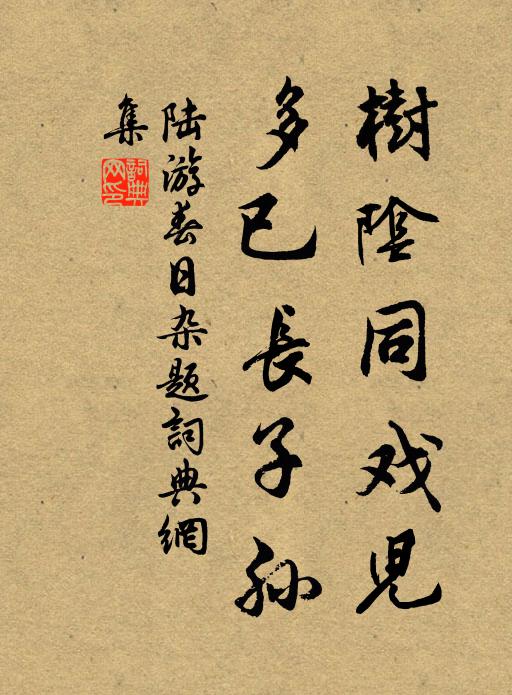 樹陰同戏児
多已長子孙
陆游春日杂题詞典網
集
詞典
网印